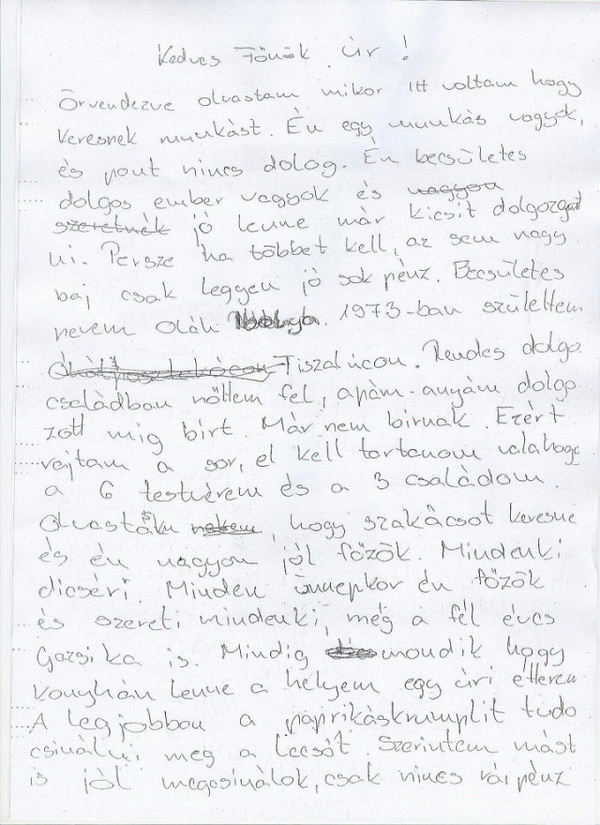 Kedves Főnök úr!
Örvendezve olvastam mikor itt voltam hogy
keresnek munkást. Én egy munkás vagyok,
és pont nincs dolog. Én becsületes
dolgos ember vagyok és vagyon
szeretnék jó lenne már kicsit dolgozgat
ni. Persze ha többet kell, az sem nagy
baj csak legyen jó sok pénz. Becsületes
nevem Oláh 1973-ban születtem
Tiszalúcon. Rendes dolgo
családban nőttem fel, apám-anyám dolgo
zott míg bírt. Már nem bírnak. Ezért
rajtam a sor, el kell tartanom valahogy
a 6 testvérem és a 3 családom.
Olvasták nekem, hogy szakácsot keresne
és én nagyon jól főzök. Mindenki
dicséri. Minden ünnepkor én főzök
és szereti mindenki, még a fél éves
Gazsika is. Mindig mondik hogy
konyhán lenne a helyem egy úri étterem
A legjobban a paprikáskrumplit tudo
csinálni meg a lecsót. Szerintem mást
is jól megcsinálok, csak nincs rá pénz